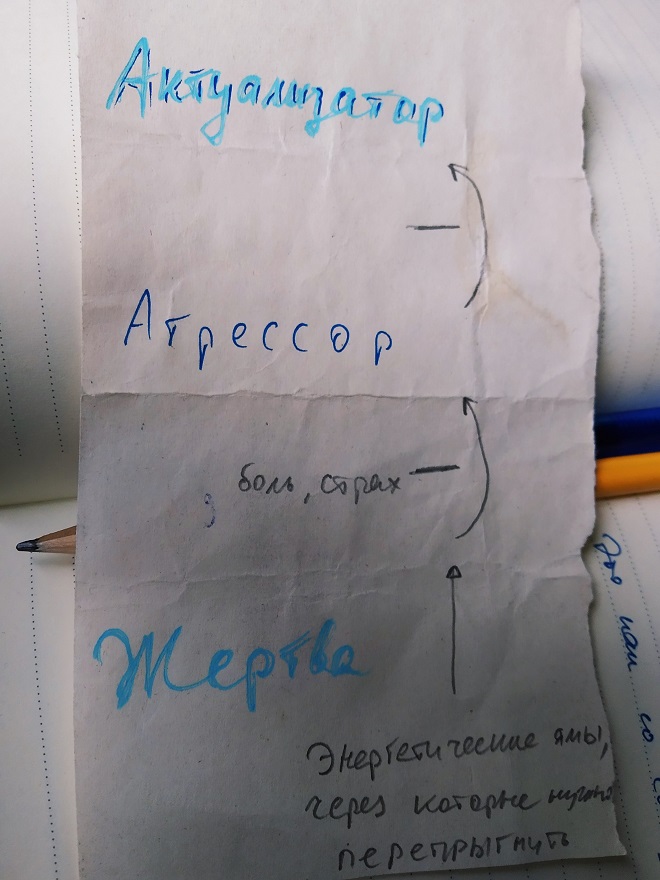 Актуализатор
Агрессор
боль, страх
Жертва
Энергетические ямы,
через которые нужно
перепрыгнуть